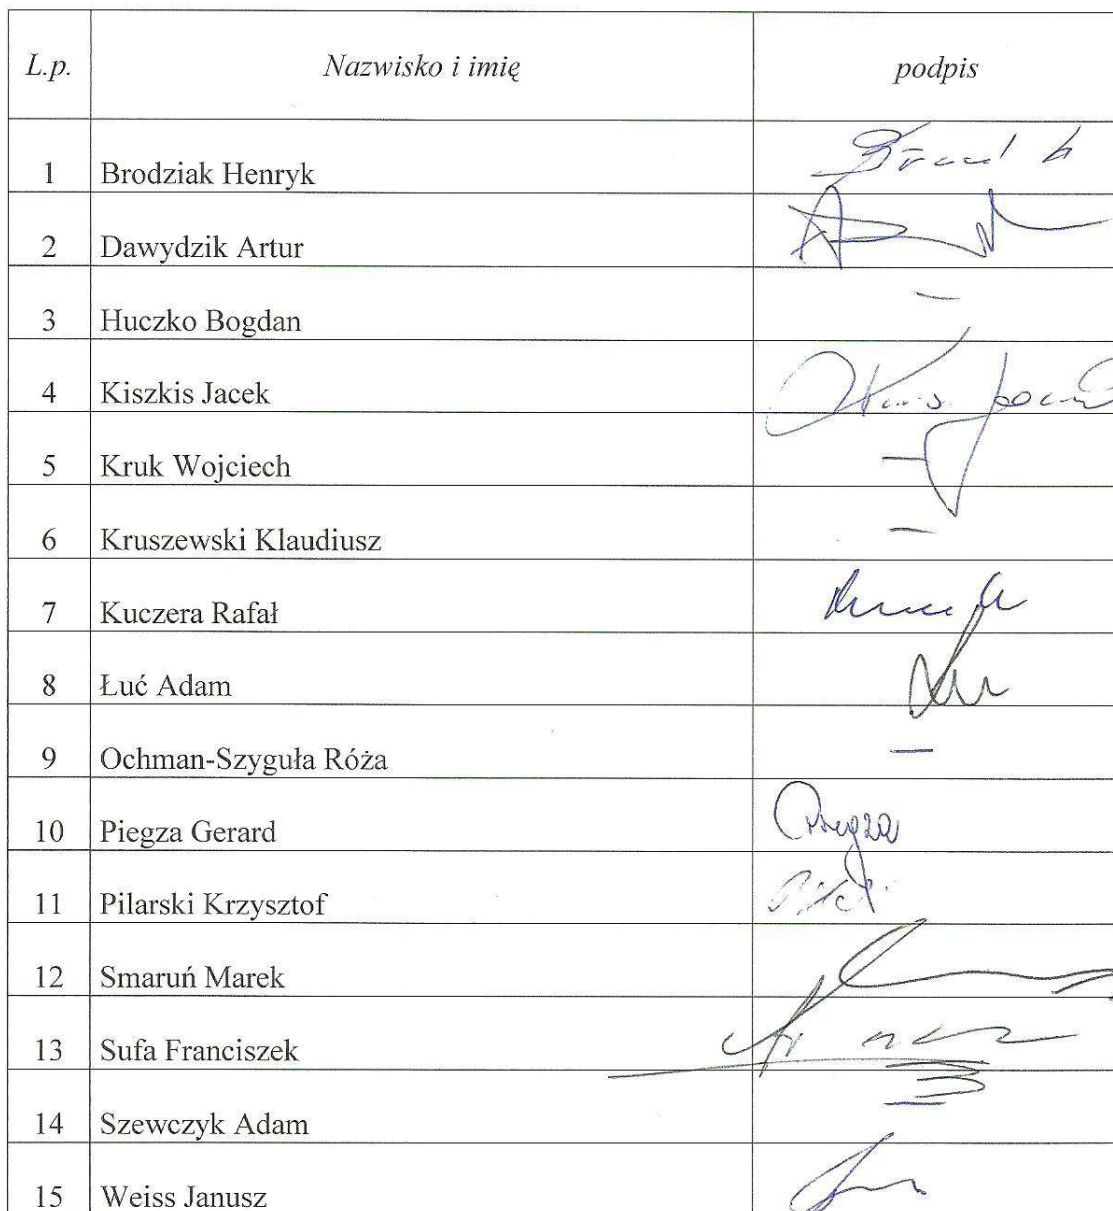 L.p. Nazwisko i imię podpis
1 Brodziak Henryk
2 Dawydzik Artur
3 Huczko Bogdan –
4 Kiszkis Jacek
5 Kruk Wojciech –
6 Kruszewski Klaudiusz –
7 Kuczera Rafał
8 Łuć Adam
9 Ochman-Szyguła Róża –
10 Piegza Gerard Piegza
11 Pilarski Krzysztof
12 Smaruń Marek
13 Sufa Franciszek
14 Szewczyk Adam –
15 Weiss Janusz